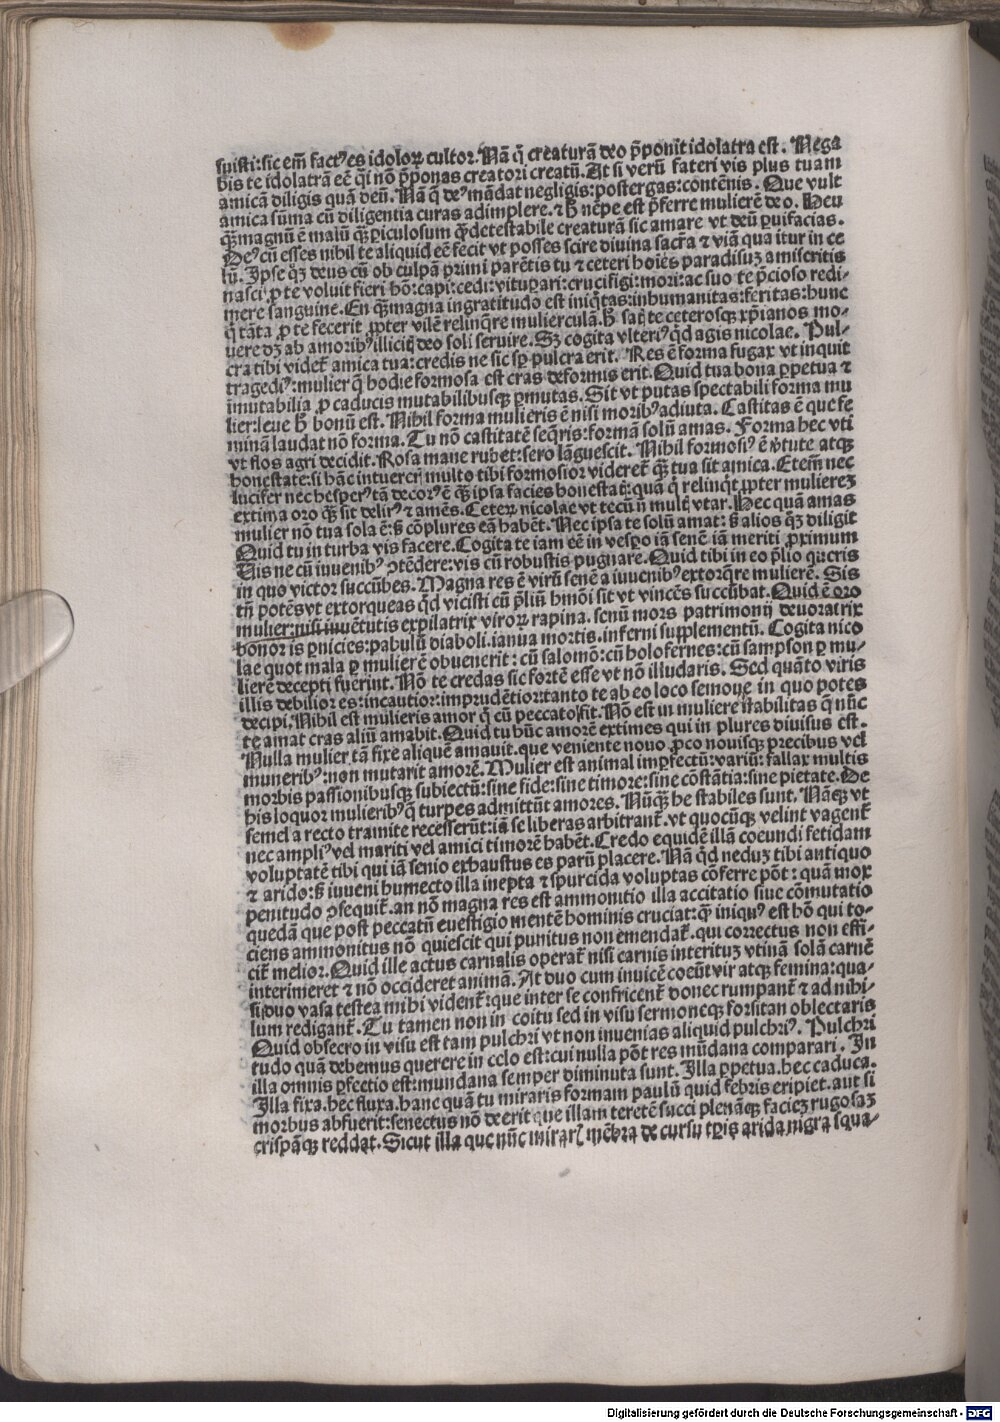 suisti: sic em̄ fact⁹ es idoloꝝ cultor. Nā q̇ creaturā deo p̄ponit idolatra est. Nega
bis te idolatrā eē q̇ nō p̄ponas creatori creatū. At si verū fateri vis plus tuam
amicā diligis quā deū. Nā q̇ de⁹ mādat negligis: postergas: contēnis. Que vult
amica sūma cū diligentia curas adimplere. ⁊ ħ nēpe est p̄ferre mulierē deo. Heu
qꝫ magnū ē malū qꝫ ꝑiculosum ꝙ detestabile creaturā sic amare vt deū ꝑuifacias.
De⁹ cū esses nihil te aliquid eē fecit vt posses scire diuina sacra ⁊ viā qua itur in ce
lū. Ipse qꝫ deus cū ob culpā primi parētis tu ⁊ ceteri hoīes paradisuꝫ amiseritis
nasci ꝓ te voluit fieri hō: capi: cedi: vituꝑari: crucifigi: mori: ac suo te p̄cioso redi-
mere sanguine. En qꝫ magna ingratitudo est iniq̇tas: inhumanitas: feritas: hunc
q̇ tāta ꝓ te fecerit ꝓpter vilē relinq̇re mulierculā. ħ satꝭ te ceterosqꝫ xp̄ianos mo-
uere dꝫ ab amorib⁹ illicitꝭ deo soli seruire. Sꝫ cogita vlteri⁹ qd̄ agis nicolae. Pul-
cra tibi videt̄ amica tua: credis ne sic sꝑ pulcra erit. Res ē forma fugax vt inquit
tragedi⁹: mulier q̄ hodie formosa est cras deformis erit. Quid tua bona ꝑpetua ⁊
īmutabilia ꝓ caducis mutabilibusqꝫ ꝑmutas. Sit vt putas spectabili forma mu
lier: leue ħ bonū est. Nihil forma mulieris ē nisi morib⁹ adiuta. Castitas ē que fe
minā laudat nō forma. Tu nō castitatē seq̇ris: formā solū amas. Forma hec vti
vt flos agri decidit. Rosa mane rubet: sero lāguescit. Nihil formosi⁹ ē v̇tute atqꝫ
honestate: si hāc intuereꝭ multo tibi formosior videret̄ qꝫ tua sit amica. Etem̄ nec
lucifer nec hesper⁹ tā decor⁹ ē qꝫ ipsa facies honestatꝭ: quā q̇ relinqt̄ ꝓpter muliereꝫ
extima oro qꝫ sit delir⁹ ⁊ amēs. Ceterꝝ nicolae vt tecū n̄ multꝭ vtar. Hec quā amas
mulier nō tua sola ē: sꝫ cōplures eā habēt. Nec ipsa te solū amat: sꝫ alios qꝫ diligit
Quid tu in turba vis facere. Cogita te iam eē in vesꝑo iā senē iā meriti ꝓximum
Uis ne cū iuuenib⁹ ꝯtēdere: vis cū robustis pugnare. Quid tibi in eo p̄lio queris
in quo victor succūbes. Magna res ē virū senē a iuuenib⁹ extorq̄re mulierē. Sis
tn̄ potēs vt extorqueas qd̄ vicisti cū p̄liū hmōi sit vt vincēs succūbat. Quid ē oro
mulier: nisi iuuētutis expilatrix viroꝝ rapina. senū mors patrimonij deuoratrix
honoris ꝑnicies: pabulū diaboli. ianua mortis. inferni supplementū. Cogita nico
lae quot mala ꝑ mulierē obuenerit: cū salomō: cū holofernes: cū sampson ꝑ mu-
lierē decepti fuerint. Nō te credas sic fortē esse vt nō illudaris. Sed quāto viris
illis debilior es: incautior: imprudētior: tanto te ab eo loco semoue in quo potes
decipi. Nihil est mulieris amor q̇ cū peccato fit. Nō est in muliere stabilitas q̄ nūc
te amat cras aliū amabit. Quid tu hūc amorē extimes qui in plures diuisus est.
Nulla mulier tā fixe aliquē amauit. que veniente nouo ꝓco nouisqꝫ precibus vel
munerib⁹: non mutarit amorē. Mulier est animal imꝑfectū: variū: fallax multis
morbis passionibusqꝫ subiectū: sine fide: sine timore: sine cōstātia: sine pietate. De
his loquor mulierib⁹ q̄ turpes admittūt amores. Nūqꝫ he stabiles sunt. Nāqꝫ vt
semel a recto tramite recesserūt: iā se liberas arbitrant̄. vt quocūqꝫ velint vagent̄
nec ampli⁹ vel mariti vel amici timorē habēt. Credo equidē illā coeundi fetidam
voluptatē tibi qui iā senio exhaustus es parū placere. Nā qd̄ neduꝫ tibi antiquo
⁊ arido: sꝫ iuueni humecto illa inepta ⁊ spurcida voluptas cōferre pōt: quā mox
penitudo ꝯsequit̄. an nō magna res est ammonitio illa accitatio siue cōmutatio
quedā que post peccatū euestigio mentē hominis cruciat: qꝫ iniqu⁹ est hō qui to-
ciens ammonitus nō quiescit qui punitus non emendat̄. qui correctus non effi-
cit̄ melior. Quid ille actus carnalis operat̄ nisi carnis interituꝫ vtinā solā carnē
interimeret ⁊ nō occideret animā. At duo cum inuicē coeūt vir atqꝫ femina: qua-
si duo vasa testea mihi vident̄: que inter se confricent̄ donec rumpant̄ ⁊ ad nihi-
lum redigant̄. Tu tamen non in coitu sed in visu sermoneqꝫ forsitan oblectaris
Quid obsecro in visu est tam pulchri vt non inuenias aliquid pulchri⁹. Pulchri
tudo quā debemus querere in celo est: cui nulla pōt res mūdana comparari. In
illa omnis ꝑfectio est: mundana semper diminuta sunt. Illa ꝑpetua. hec caduca.
Illa fixa. hec fluxa. hanc quā tu miraris formam paulū quid febris eripiet. aut si
morbus abfuerit: senectus nō deerit que illam teretē succi plenāqꝫ facieꝫ rugosaꝫ
crispāqꝫ reddat. Sicut illa que nūc mirarꝭ mēbra de cursu tꝑis arida nigra squa-
Digitalisierung gefördert durch die Deutsche Forschungsgemeinschaft - DFG